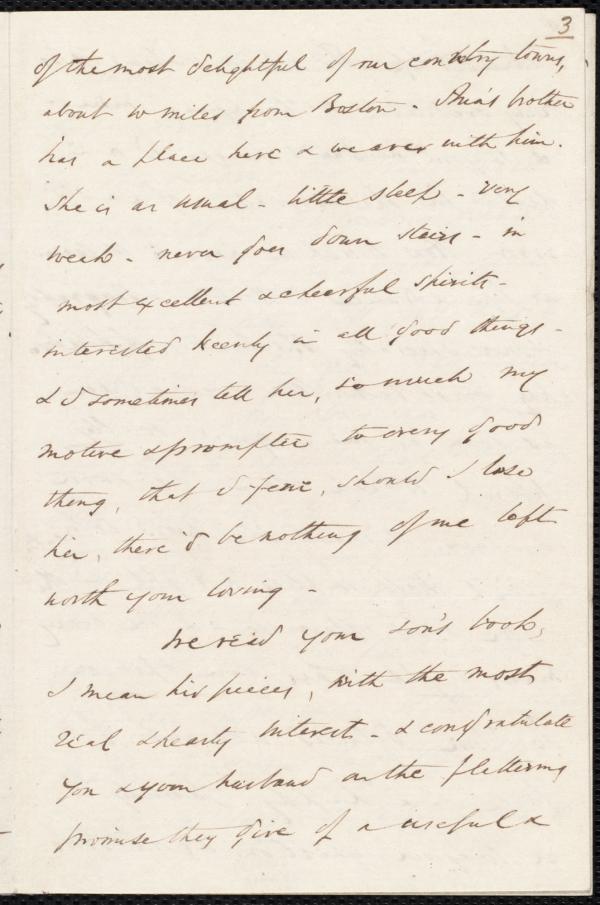 3
of the most delightful of our country towns,
about 10 miles from Boston - Ann's brother
has a place here & we are with him.
She is as usual - little sleep - very
weak - never goes down stairs - in
most excellent & cheerful spirits -
interested keenly in all good things -
& I sometimes tell her, so much my
motive & prompter to every good
thing, that I fear, should I lose
her, there'd be nothing of me left
worth your loving -
We read your son's book,
I mean his pieces, with the most
real & hearty interest - & congratulate
you & your husband on the flattering
promise they give of a useful &